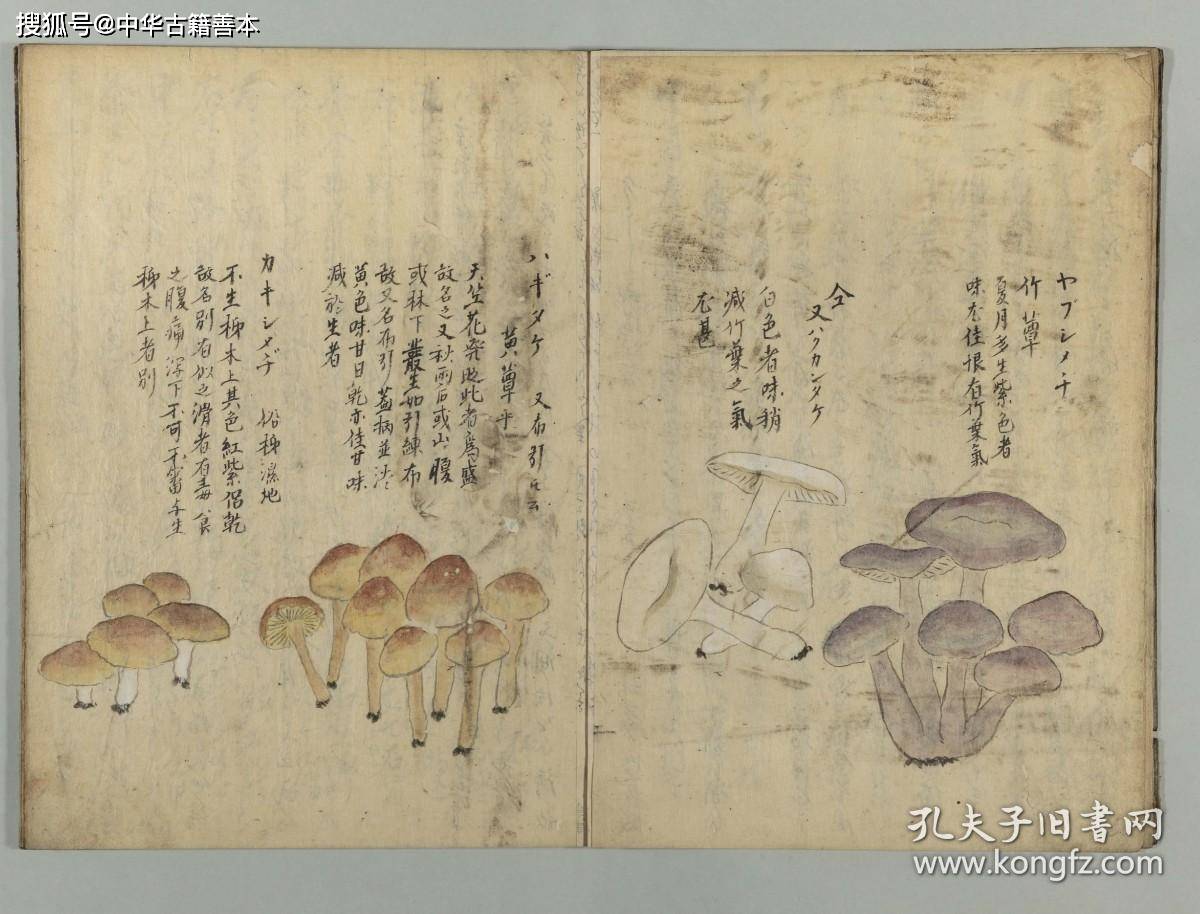 搜狐号@中华古籍善本
ヤブシメヂ
竹蕈
夏月多生紫色者
味尤佳恨有竹葉氣
仝
又ハクカンタケ
白色者味稍
減竹葉之氣
尤甚
ハギタケ 又布引トモ云
黄蕈乎
天笠花発此者爲盛
故名之又秋雨后或山腹
或林下叢生如引練布
故又名布引蓋柄並淡
黄色味甘日乾亦佳甘味
減於生者
カキシメヂ 俗柹濕地
不生柹木上其色紅紫侣乾
故名別有似之滑者有毒食
之腹痛瀉下不可不審与生
柹木上者別
孔夫子旧書网
www.kongfz.com